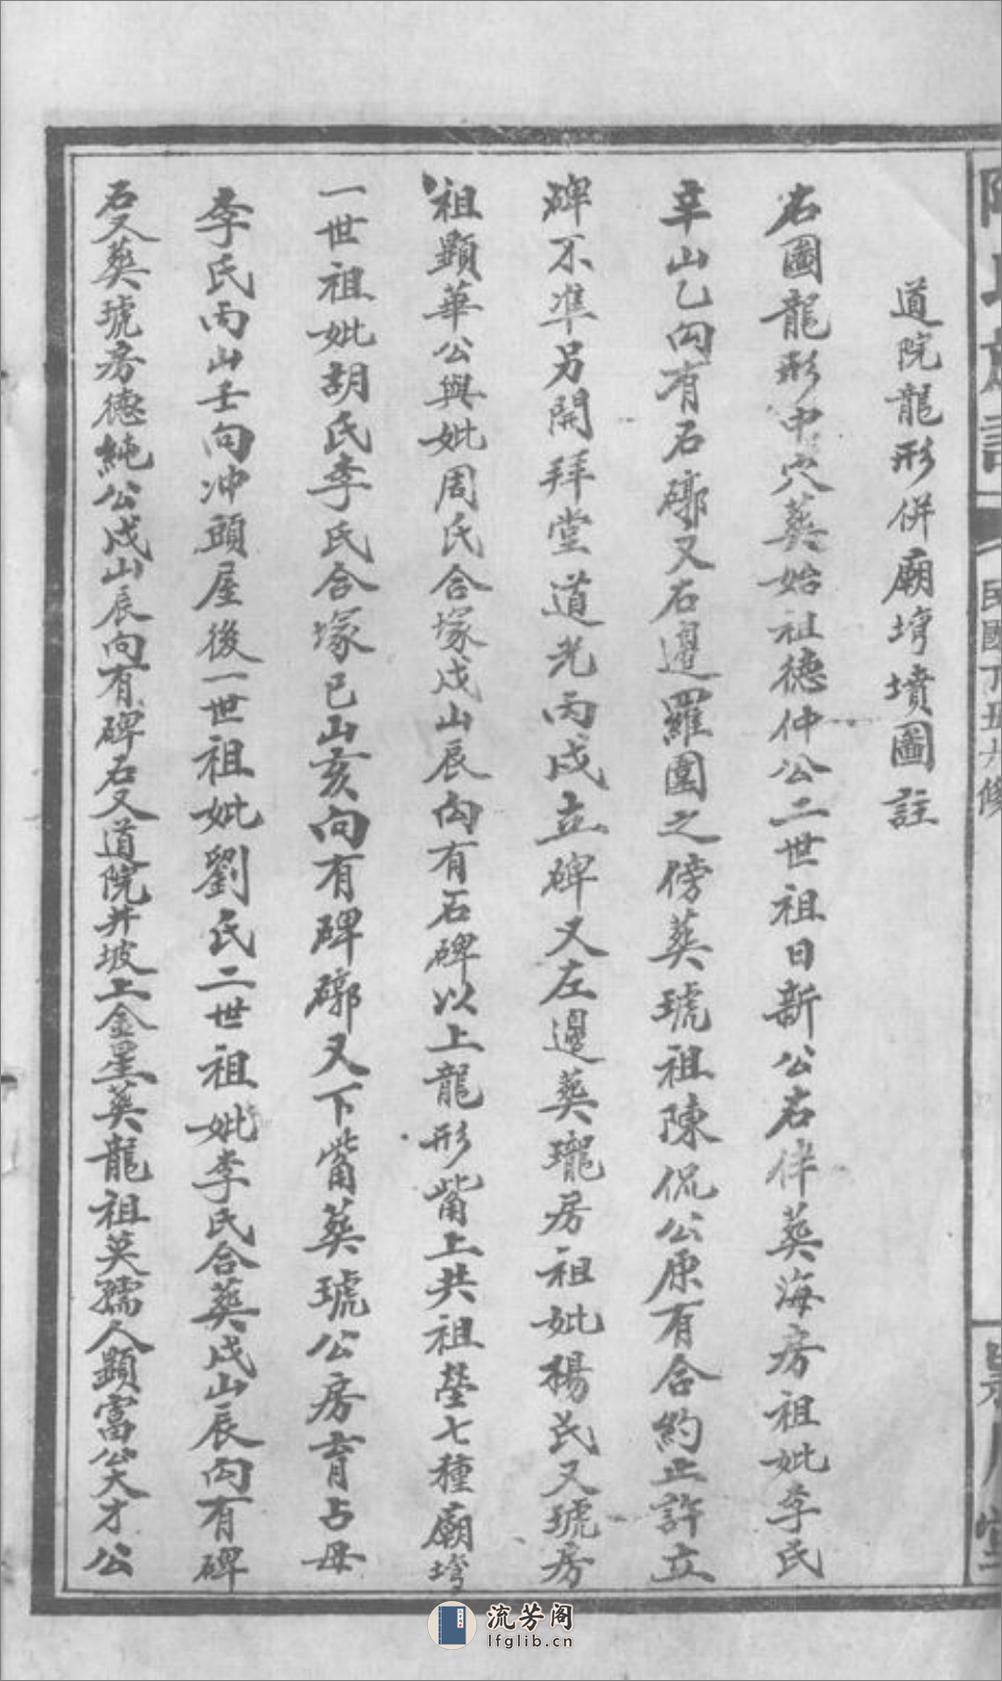 道院龍形併廟塆墳圖註
右圖龍形中穴葬始祖德仲公二世祖日新公右伴葬海房祖妣李氏
辛山乙向有石槨又右邊羅圍之傍葬琥祖陳侃公原有合約止許立
碑不准另開拜堂道光丙戌立碑又左邊葬瓏房祖妣楊氏又琥房
祖顯華公與妣周氏合塚戌山辰向有石碑以上龍形嘴上共祖塋七種廟塆
一世祖妣胡氏李氏合塚巳山亥向有碑槨又下嘴葬琥公房育占母
李氏丙山壬向冲頭屋後一世祖妣劉氏二世祖妣李氏合葬戌山辰向有碑
石又葬琥房德純公戌山辰向有碑石又道院井坡上金星葬龍祖英孺人顯富公大才公
民國丁丑六修
流芳阁
lfglib.cn